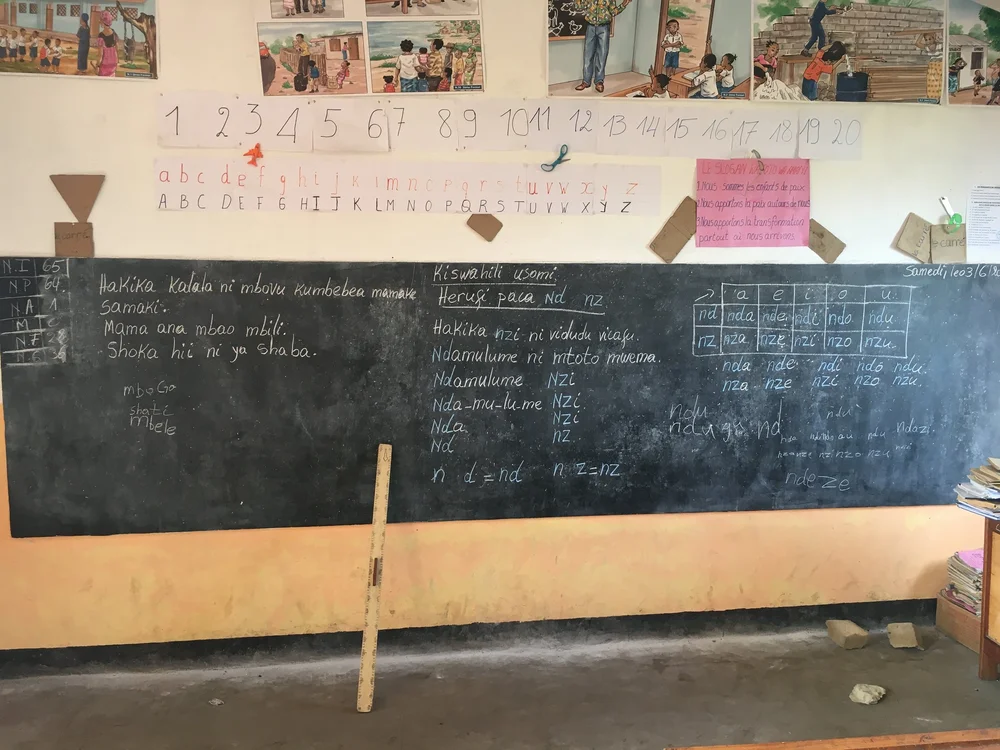 1 2 3 4 5 6 7 8 9 10 11 12 13 14 15 16 17 18 19 20
a b c d e f g h i j k l m n o p q r s t u v w x y z
A B C D E F G H I J K L M N O P Q R S T U V W X Y Z
LE SLOGAN
1. Nous sommes les enfants de paix
2. Nous apportons la paix autour de nous
3. Nous apportons la transformation
partout où nous arrivons
carré
N.I 65
N P 64
N A 1
Hakika Kalala ni mbovu kumbebea mamake
Samaki.
Mama ana mbao mbili.
Shoka hii ni ya shaba.
mboGo
shati
mbele
Kiswahili usomi
Herufi paca Nd nz
Hakika nzi ni vidudu vicafu.
Ndamulume ni mtoto mwema.
Ndamulume Nzi
Nda-mu-lu-me Nzi
Nda Nzi
Nd nz
n d = nd n z = nz
Samedi, leo 3/6/
a e i o u
nd nda nde ndi ndo ndu
nz nza nze nzi nzo nzu
nda nde ndi ndo ndu
nza nze nzi nzo nzu
ndu ndu
ndugu nd ndazi
ndeze